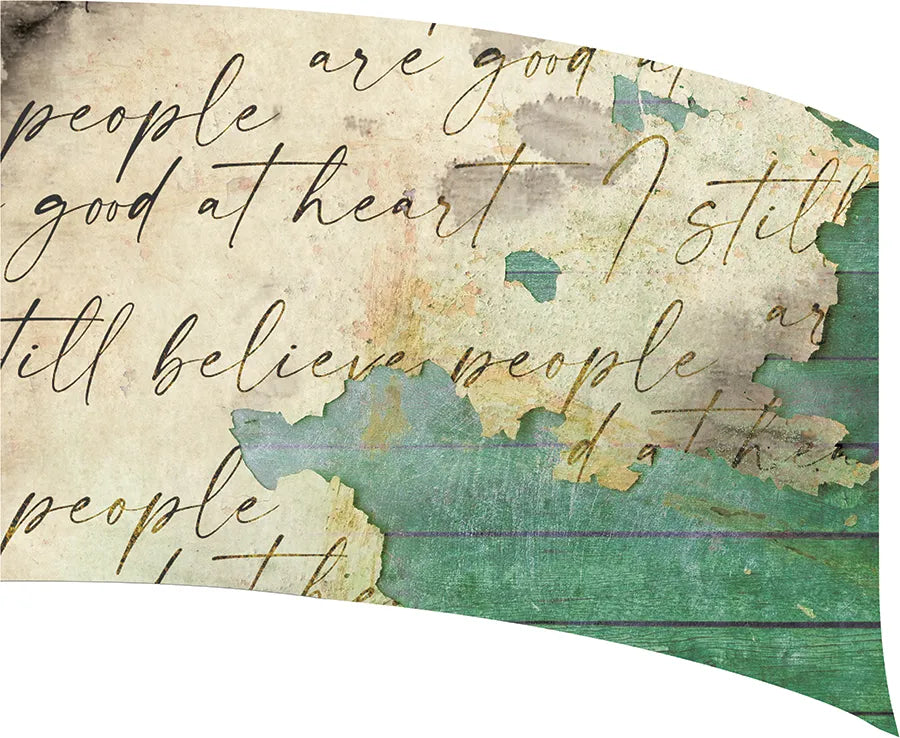 are good at
people
good at heart I still
ar
till believe people
d at hea
people